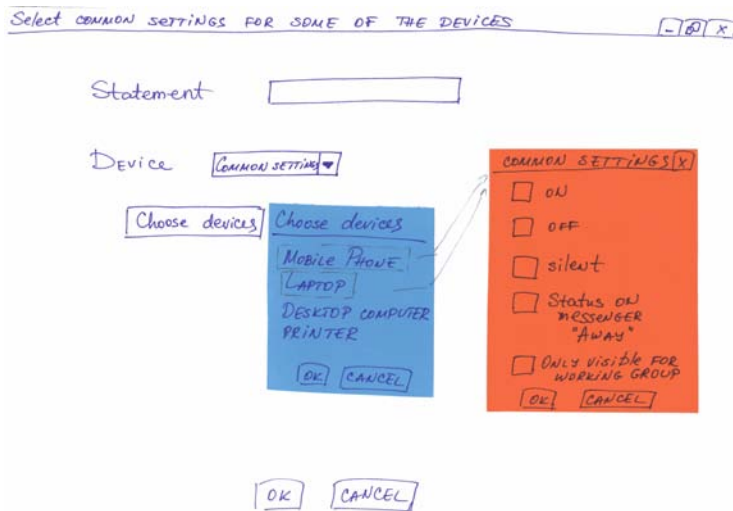 Select COMMON SETTiNGS FOR SOME OF THE DEViCES
- x
Statement
DEVice COMMON SETTiNGS
Choose devices
Choose devices
MOBiLE PHONE
LAPTOP
DESKTOP COMPUTER
PRiNTER
OK CANCEL
COMMON SETTiNGS X
ON
OFF
silent
Status ON
MESSENGER
"AWAY"
ONLY Visible FOR
WORKING GROUP
OK CANCEL
OK CANCEL